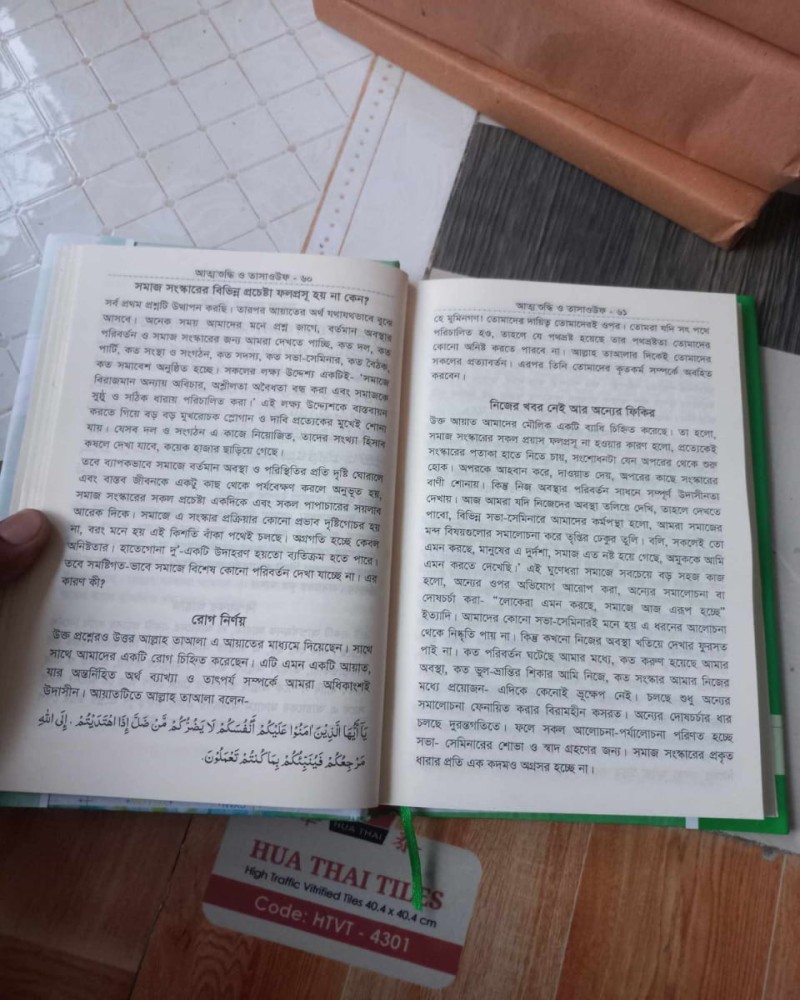 আত্মশুদ্ধি ও তাসাওউফ - ৬০
সমাজ সংস্কারের বিভিন্ন প্রচেষ্টা ফলপ্রসূ হয় না কেন?
সর্ব প্রথম প্রশ্নটি উত্থাপন করছি। তারপর আয়াতের অর্থ যথাযথভাবে বুঝে
আসবে। অনেক সময় আমাদের মনে প্রশ্ন জাগে, বর্তমান অবস্থার
পরিবর্তন ও সমাজ সংস্কারের জন্য আমরা দেখতে পাচ্ছি, কত দল, কত
পার্টি, কত সংস্থা ও সংগঠন, কত সদস্য, কত সভা-সেমিনার, কত বৈঠক,
কত সমাবেশ অনুষ্ঠিত হচ্ছে। সকলের লক্ষ্য উদ্দেশ্য একটিই- ‘সমাজে
বিরাজমান অন্যায় অবিচার, অশ্লীলতা অবৈধতা বন্ধ করা এবং সমাজকে
সুষ্ঠু ও সঠিক ধারায় পরিচালিত করা।’ এই লক্ষ্য উদ্দেশ্যকে বাস্তবায়ন
করতে গিয়ে বড় বড় মুখরোচক স্লোগান ও দাবি প্রত্যেকের মুখেই শোনা
যায়। যেসব দল ও সংগঠন এ কাজে নিয়োজিত, তাদের সংখ্যা হিসাব
কষলে দেখা যাবে, কয়েক হাজার ছাড়িয়ে গেছে।
তবে ব্যাপকভাবে সমাজে বর্তমান অবস্থা ও পরিস্থিতির প্রতি দৃষ্টি ঘোরালে
এবং বাস্তব জীবনকে একটু কাছ থেকে পর্যবেক্ষণ করলে অনুভূত হয়,
সমাজ সংস্কারের সকল প্রচেষ্টা একদিকে এবং সকল পাপাচারের সয়লাব
আরেক দিকে। সমাজে এ সংস্কার প্রক্রিয়ার কোনো প্রভাব দৃষ্টিগোচর হয়
না, বরং মনে হয় এই কিশতি বাঁকা পথেই চলছে। অগ্রগতি হচ্ছে কেবল
অনিষ্টতার। হাতেগোনা দু’-একটি উদাহরণ হয়তো ব্যতিক্রম হতে পারে।
তবে সমষ্টিগত-ভাবে সমাজে বিশেষ কোনো পরিবর্তন দেখা যাচ্ছে না। এর
কারণ কী?
রোগ নির্ণয়
উক্ত প্রশ্নেরও উত্তর আল্লাহ তাআলা এ আয়াতের মাধ্যমে দিয়েছেন। সাথে
সাথে আমাদের একটি রোগ চিহ্নিত করেছেন। এটি এমন একটি আয়াত,
যার অন্তর্নিহিত অর্থ ব্যাখ্যা ও তাৎপর্য সম্পর্কে আমরা অধিকাংশই
উদাসীন। আয়াতটিতে আল্লাহ তাআলা বলেন-
يَا أَيُّهَا الَّذِيْنَ اٰمَنُوْا عَلَيْكُمْ أَنْفُسَكُمْ لَا يَضُرُّكُمْ مَّنْ ضَلَّ إِذَا اهْتَدَيْتُمْ . إِلَى اللهِ
مَرْجِعُكُمْ فَيُنَبِّئُكُمْ بِمَا كُنْتُمْ تَعْمَلُوْنَ .
আত্মশুদ্ধি ও তাসাওউফ - ৬১
হে মুমিনগণ! তোমাদের দায়িত্ব তোমাদেরই ওপর। তোমরা যদি সৎ পথে
পরিচালিত হও, তাহলে যে পথভ্রষ্ট হয়েছে তার পথভ্রষ্টতা তোমাদের
কোনো অনিষ্ট করতে পারবে না। আল্লাহ তাআলার দিকেই তোমাদের
সকলের প্রত্যাবর্তন। এরপর তিনি তোমাদের কৃতকর্ম সম্পর্কে অবহিত
করবেন।
নিজের খবর নেই আর অন্যের ফিকির
উক্ত আয়াত আমাদের মৌলিক একটি ব্যাধি চিহ্নিত করেছে। তা হলো,
সমাজ সংস্কারের সকল প্রয়াস ফলপ্রসূ না হওয়ার কারণ হলো, প্রত্যেকেই
সংস্কারের পতাকা হাতে নিতে চায়, সংশোধনটা যেন অপরের থেকে শুরু
হোক। অপরকে আহবান করে, দাওয়াত দেয়, অপরের কাছে সংস্কারের
বাণী শোনায়। কিন্তু নিজ অবস্থার পরিবর্তন সাধনে সম্পূর্ণ উদাসীনতা
দেখায়। আজ আমরা যদি নিজেদের অবস্থা তলিয়ে দেখি, তাহলে দেখতে
পাবো, বিভিন্ন সভা-সেমিনারে আমাদের কর্মপন্থা হলো, আমরা সমাজের
মন্দ বিষয়গুলোর সমালোচনা করে তৃপ্তির ঢেকুর তুলি। বলি, সকলেই তো
এমন করছে, মানুষের এ দুর্দশা, সমাজ এত নষ্ট হয়ে গেছে, অমুককে আমি
এমন করতে দেখেছি।’ এই ঘুণেধরা সমাজে সবচেয়ে বড় সহজ কাজ
হলো, অন্যের ওপর অভিযোগ আরোপ করা, অন্যের সমালোচনা বা
দোষচর্চা করা- “লোকেরা এমন করছে, সমাজে আজ এরূপ হচ্ছে”
ইত্যাদি। আমাদের কোনো সভা-সেমিনারই মনে হয় এ ধরনের আলোচনা
থেকে নিষ্কৃতি পায় না। কিন্তু কখনো নিজের অবস্থা খতিয়ে দেখার ফুরসত
পাই না। কত পরিবর্তন ঘটেছে আমার মধ্যে, কত করুণ হয়েছে আমার
অবস্থা, কত ভুল-ভ্রান্তির শিকার আমি নিজে, কত সংস্কার আমার নিজের
মধ্যে প্রয়োজন- এদিকে কেনোই ভ্রূক্ষেপ নেই। চলছে শুধু অন্যের
সমালোচনা ফেনায়িত করার বিরামহীন কসরত। অন্যের দোষচর্চার ধারা
চলছে দুরন্তগতিতে। ফলে সকল আলোচনা-পর্যালোচনা পরিণত হচ্ছে
সভা- সেমিনারের শোভা ও স্বাদ গ্রহণের জন্য। সমাজ সংস্কারের প্রকৃত
ধারার প্রতি এক কদমও অগ্রসর হচ্ছে না।
HUA THAI
HUA THAI TILES
High Traffic Vitrified Tiles 40.4 x 40.4 cm
Code: HTVT - 4301